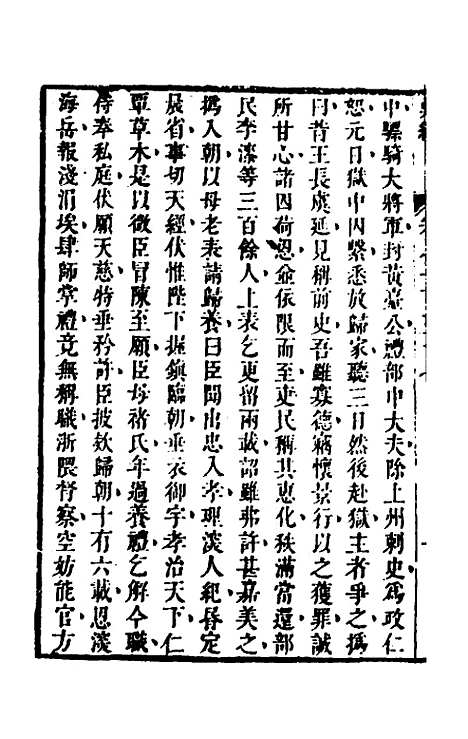 中驃騎大將軍封黃臺公禮部中大夫除上州刺史爲政仁
恕元日獄中囚繫悉放歸家聽三日然後赴獄主者爭之撝
曰昔王長虞延見稱前史吾雖寡德竊懷景行以之獲罪誠
所甘心諸囚荷恩並依限而至吏民稱其惠化秩滿當還部
民李漆等三百餘人上表乞更留兩載詔雖弗許甚嘉美之
撝入朝以母老表請歸養曰臣聞出忠入孝理深人紀昏定
晨省事切天經伏惟陛下握鎮臨朝垂衣御宇孝治天下仁
覃草木是以微臣冒陳至願臣母褚氏年過養禮乞解今職
侍奉私庭伏願天慈特垂矜許臣披欵歸朝十有六載恩深
海岳報淺涓埃肆師掌禮竟無稱職浙隈督察空妨能官方